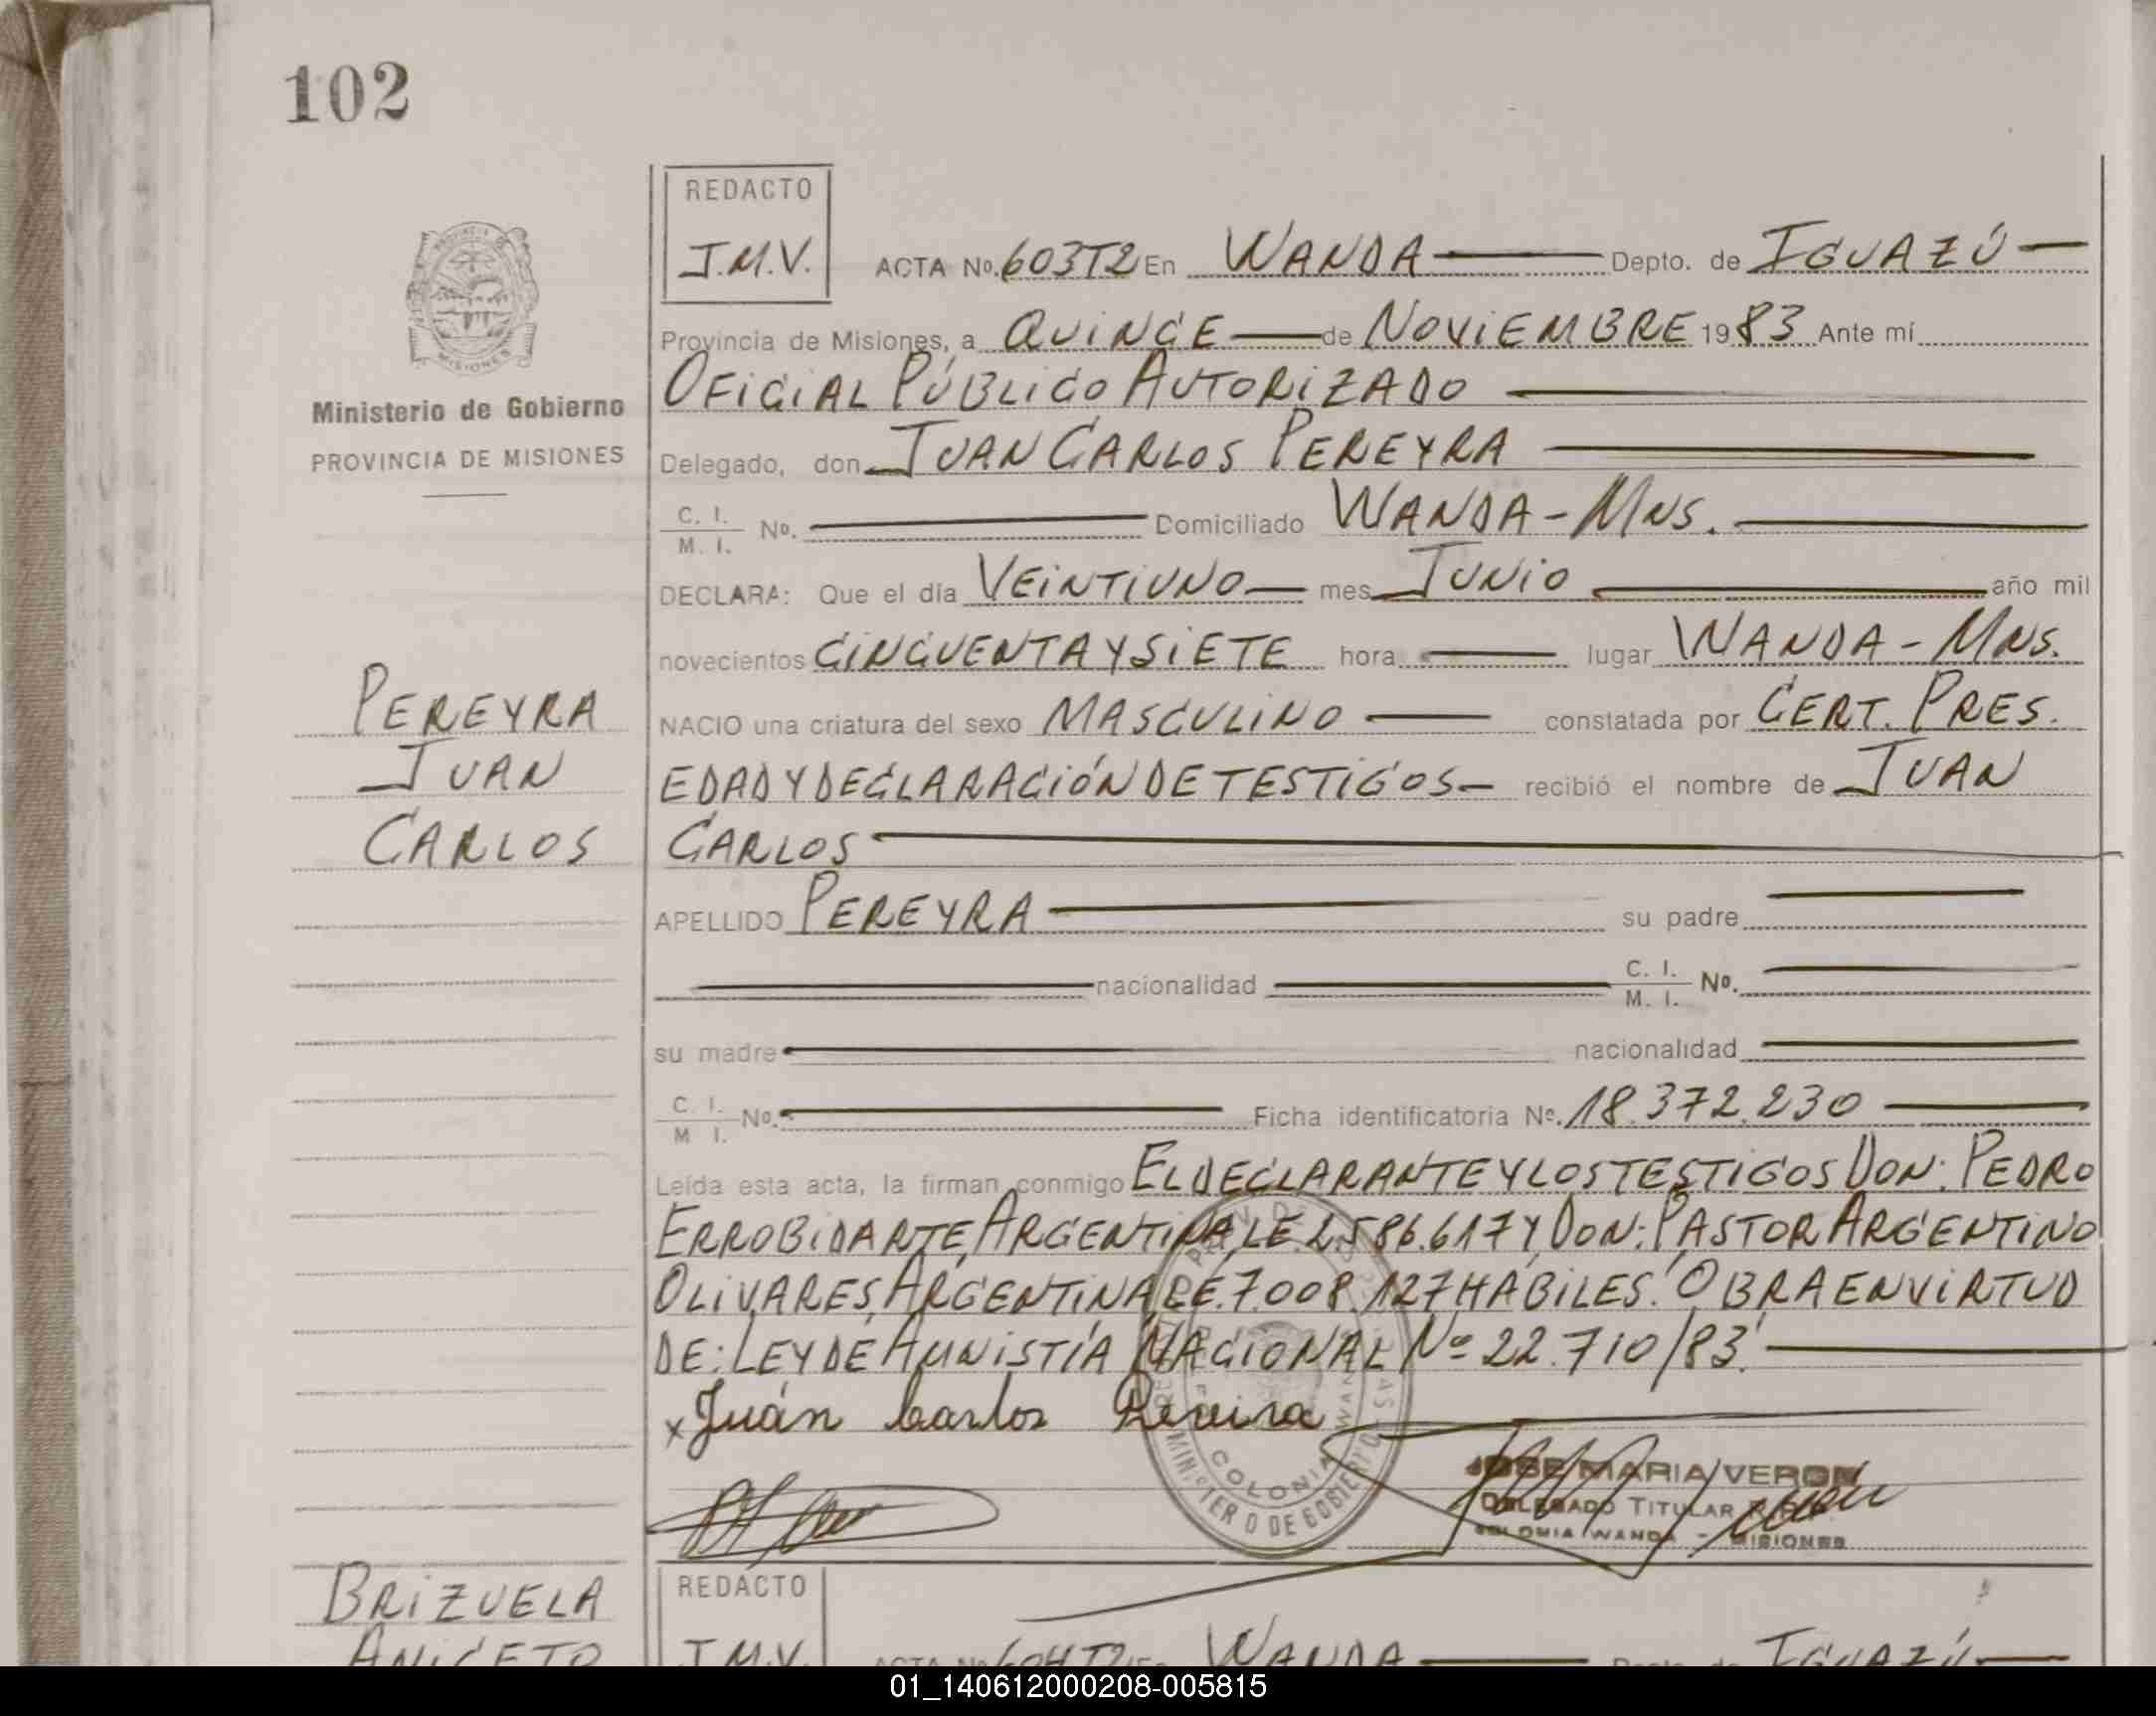 102
REDACTO
J.M.V.
ACTA No. 603T2 En WANDA Depto. de IGUAZÚ
Provincia de Misiones, a QUINCE de NOVIEMBRE 1983 Ante mí
OFICIAL PÚBLICO AUTORIZADO
Ministerio de Gobierno
PROVINCIA DE MISIONES
Delegado, don JUAN CARLOS PEREYRA
C. I. M. I. No. Domiciliado WANDA - MNS.
DECLARA: Que el día VEINTIUNO mes JUNIO año mil
novecientos CINCUENTA Y SIETE hora lugar WANDA - MNS.
PEREYRA
JUAN
CARLOS
NACIO una criatura del sexo MASCULINO constatada por CERT. PRES.
EDAD Y DECLARACIÓN DE TESTIGOS recibió el nombre de JUAN
CARLOS
APELLIDO PEREYRA su padre
nacionalidad C. I. M. I. No.
su madre nacionalidad
C. I. M. I. No. Ficha identificatoria No. 18.372.230
Leída esta acta, la firman conmigo EL DECLARANTE Y LOS TESTIGOS DON: PEDRO
ERROBIDARTE, ARGENTINA, LE 2.586.617 Y DON: PASTOR ARGENTINO
OLIVARES, ARGENTINA LE. 7.008.127 HÁBILES. OBRA EN VIRTUD
DE: LEY DE AMNISTÍA NACIONAL Nº 22.710/83.
x Juán Carlos Pereira
COLONIA WANDA
MINISTERIO DE GOBIERNO
JOSE MARIA VERON
DELEGADO TITULAR
COLONIA WANDA - MISIONES
BRIZUELA
ANICETO
REDACTO
J.M.V.
ACTA No. 604T2 En WANDA Depto. de IGUAZÚ
01_140612000208-005815